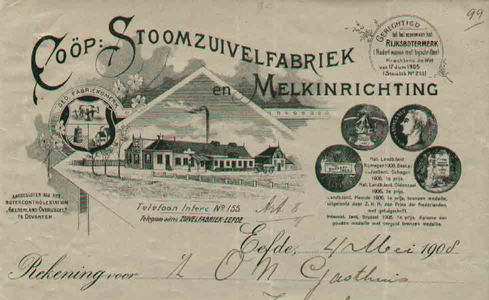 99
COÖP: STOOMZUIVELFABRIEK
en MELKINRICHTING
GERECHTIGD
tot het voeren van het
RIJKSBOTERMERK
(Nederlandsche botercontrole)
Krachtens de Wet
van 17 Juni 1905
(Staatsbl. Nº 218)
GED. FABRIEKSMERK
AANGESLOTEN BIJ HET
BOTERCONTROLESTATION
"GELDERLAND-OVERIJSSEL"
TE DEVENTER
Telefoon Interc. Nº 155
Telegram adres ZUIVELFABRIEK-EEFDE
Nat. Landb.tent.
Nijmegen 1906.
Schagen
1906. 1e prijs.
Nat. Landb.tent. Oldenzaal
1906. 1e prijs.
Landb.tent. Hengelo 1906. 1e prijs, bronzen medaille,
uitgeloofd door Z. K. H. den Prins der Nederlanden,
met getuigschrift.
Internat. tent. Brussel 1906. 1e prijs. diploma der
gouden medaille met verguld bronzen medaille.
Eefde, 4 Mei 1908
Rekening voor 't O N Gasthuis